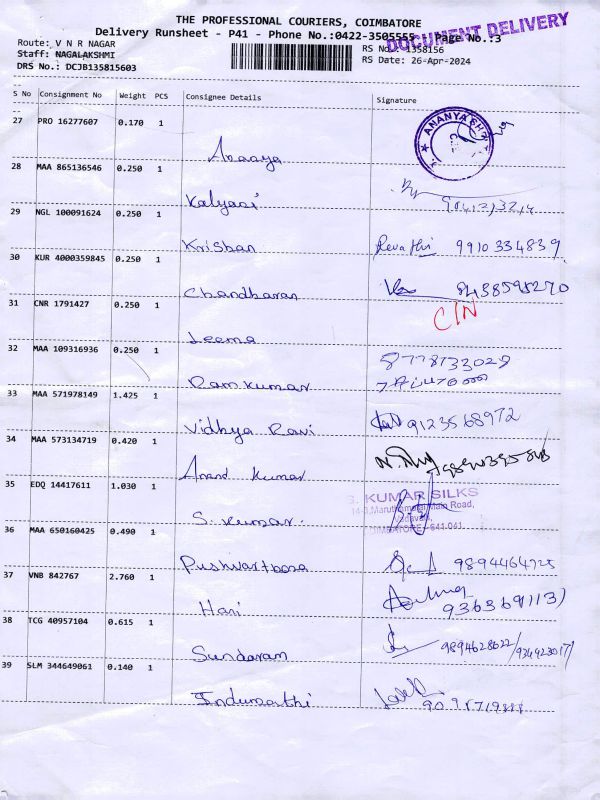 THE PROFESSIONAL COURIERS, COIMBATORE
Delivery Runsheet - P41 - Phone No.:0422-3505555 Page No.:3
DOCUMENT DELIVERY
Route: V N R NAGAR
RS No.: 1358156
Staff: NAGALAKSHMI
RS Date: 26-Apr-2024
DRS No.: DCJB135815603
S No Consignment No Weight PCS Consignee Details Signature
27 PRO 16277607 0.170 1
ANANYA
Ananya
28 MAA 865136546 0.250 1
Kalyani
29 NGL 100091624 0.250 1
Krishan Revathi 9910334839
30 KUR 4000359845 0.250 1
Chandharan 8438595270
31 CNR 1791427 0.250 1
CIN
Leema
32 MAA 109316936 0.250 1
8778733029
Ram kumar
33 MAA 571978149 1.425 1
Vidhya Ravi 9123568972
34 MAA 573134719 0.420 1
Anand kumar
35 EDQ 14417611 1.030 1
S. KUMAR SILKS
Main Road,
641 041
S. kumar.
36 MAA 650160425 0.490 1
9894464725
37 VNB 842767 2.760 1
Hari
38 TCG 40957104 0.615 1
Sundaram 9894628622
39 SLM 344649061 0.140 1
Indumathi